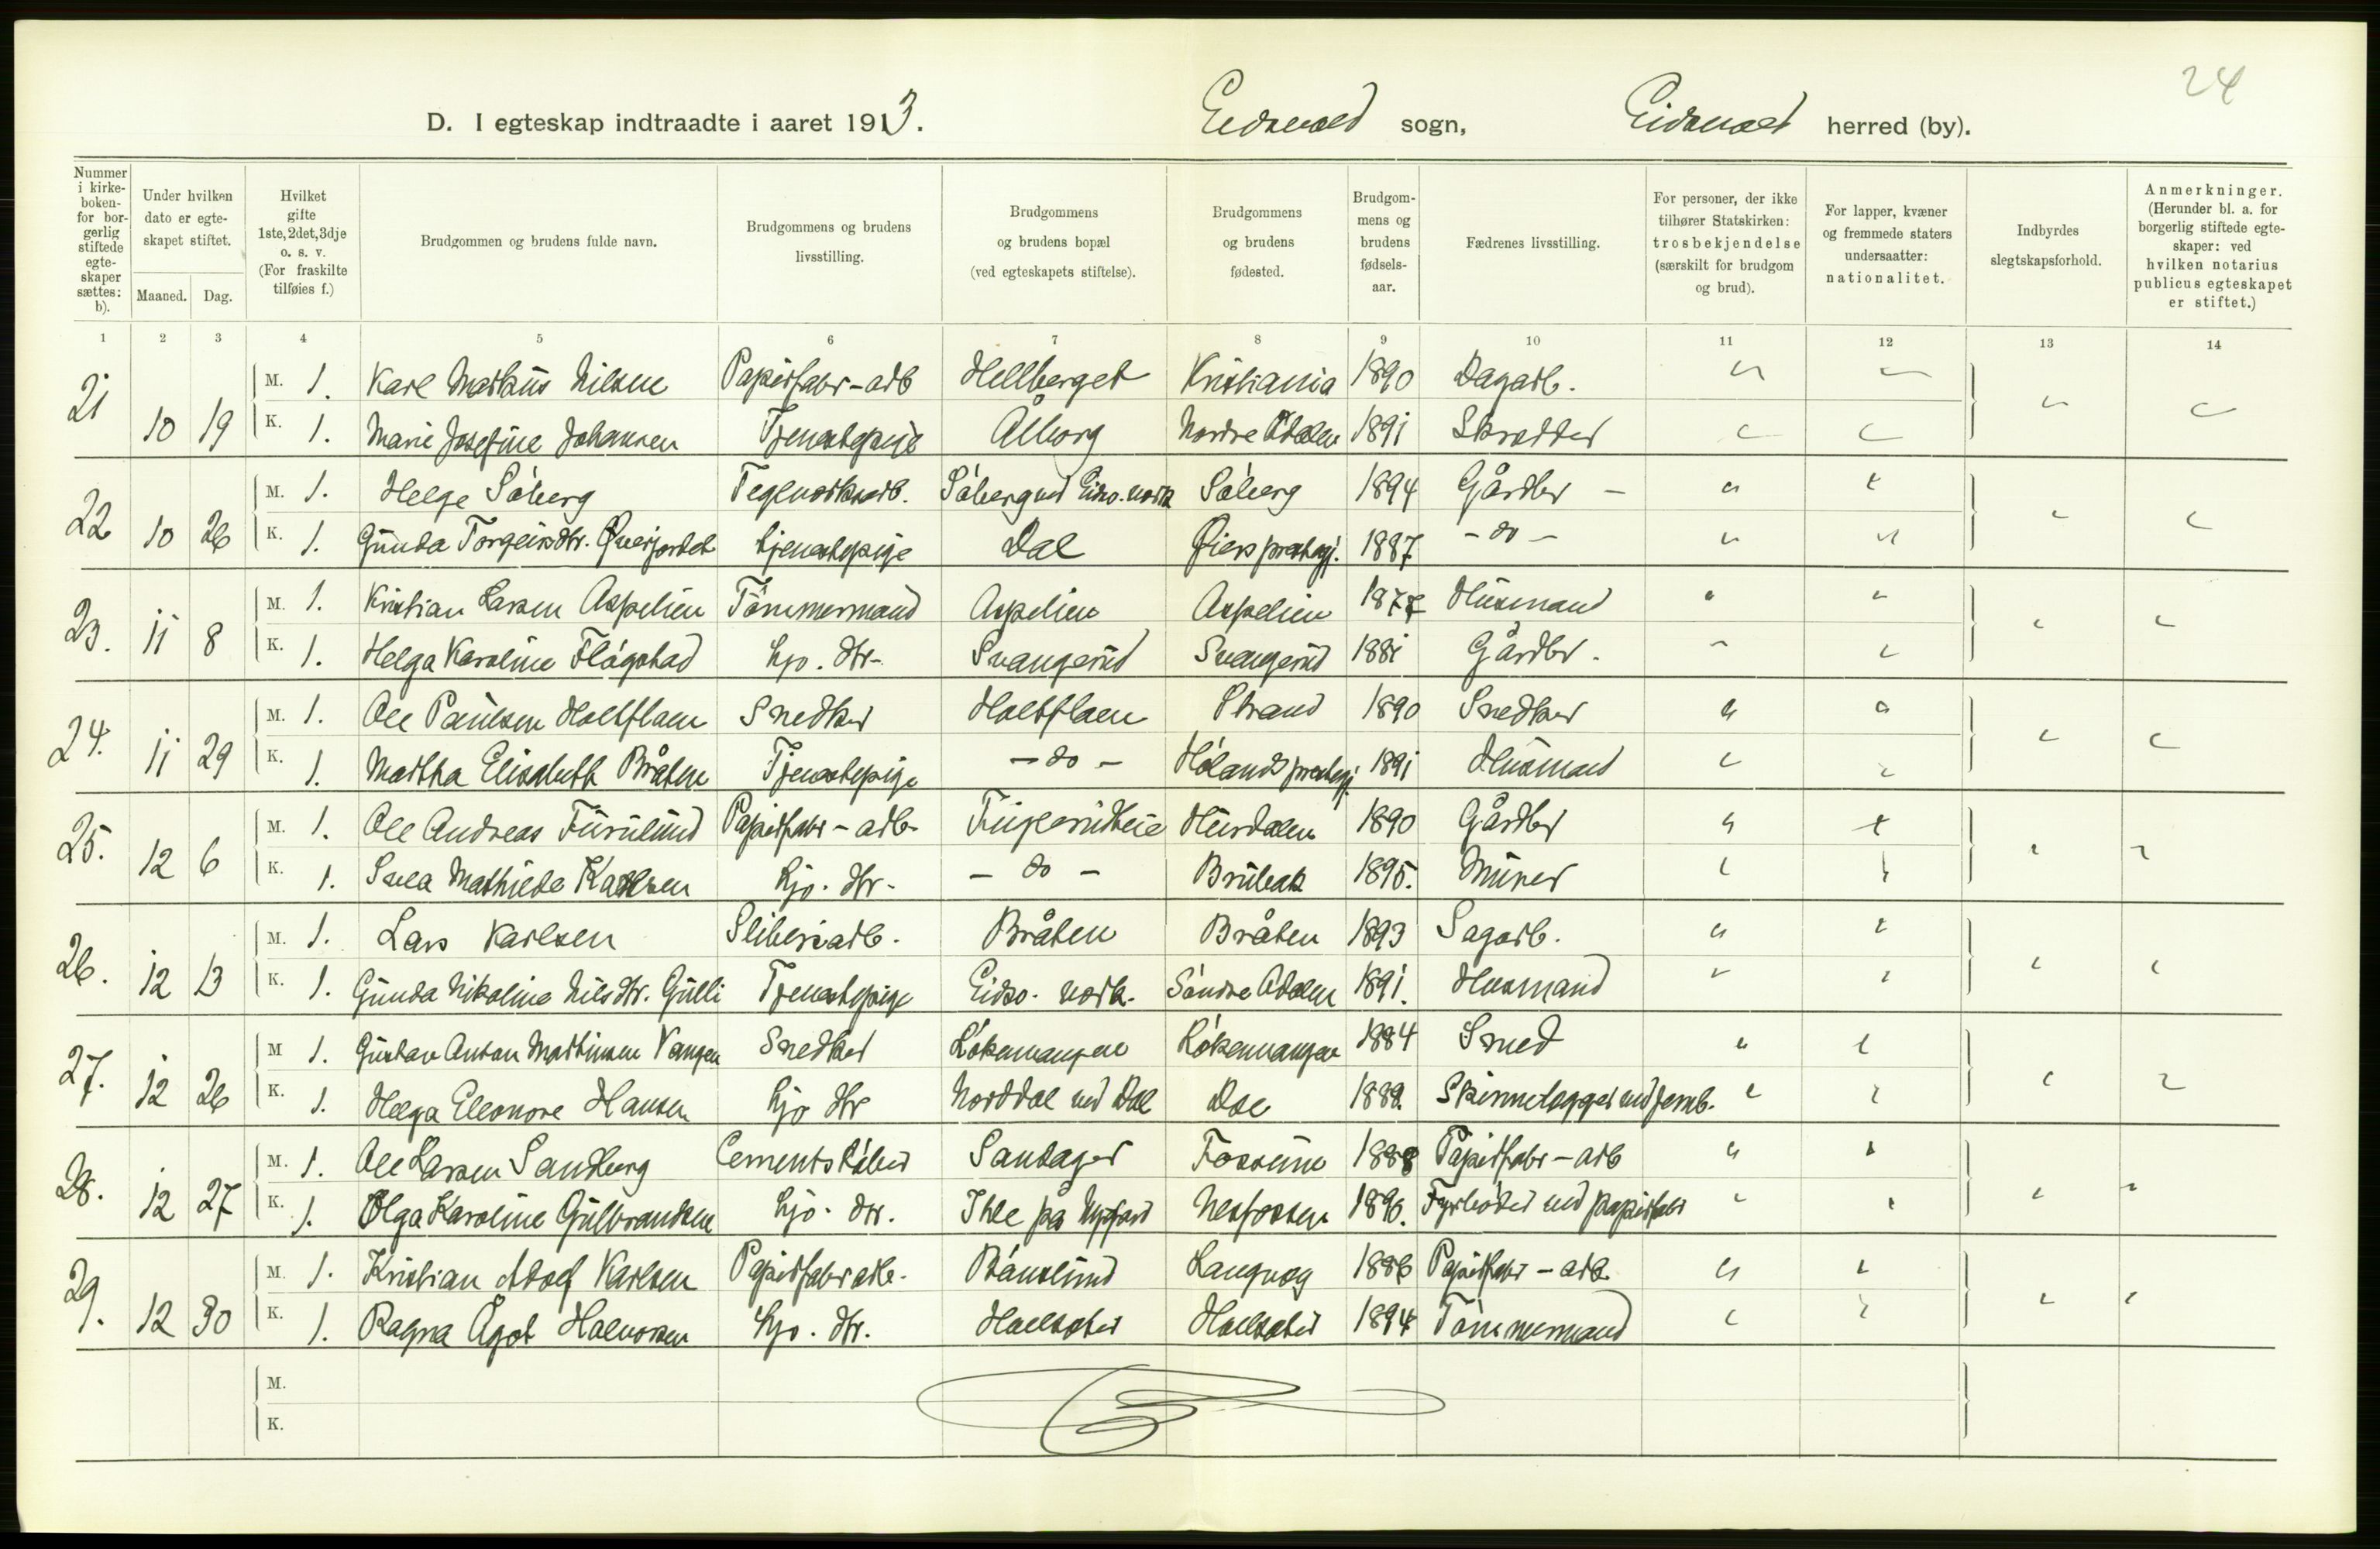 24
D. I egteskap indtraadte i aaret 1913. Eidsvold sogn, Eidsvold herred (by).
Nummer i kirkeboken- for borgerlig stiftede egteskaper sættes: b). | Under hvilken dato er egteskapet stiftet. Maaned. Dag. | Hvilket gifte 1ste, 2det, 3dje o. s. v. (For fraskilte tilføies f.) | Brudgommen og brudens fulde navn. | Brudgommens og brudens livsstilling. | Brudgommens og brudens bopæl (ved egteskapets stiftelse). | Brudgommens og brudens fødested. | Brudgommens og brudens fødselsaar. | Fædrenes livsstilling. | For personer, der ikke tilhører Statskirken: trosbekjendelse (særskilt for brudgom og brud). | For lapper, kvæner og fremmede staters undersaatter: nationalitet. | Indbyrdes slegtskapsforhold. | Anmerkninger. (Herunder bl. a. for borgerlig stiftede egteskaper: ved hvilken notarius publicus egteskapet er stiftet.)
1 2 3 4 5 6 7 8 9 10 11 12 13 14
21 M. 1. Karl Markus Nilsen Papirfabr-arb Hellberget Kristiania 1890 Dagarb.
10 19 K. 1. Marie Josefine Johansen Tjenestepige Ålborg Nordre Odalen 1891 Skrædder
22 M. 1. Helge Såberg Teglverksarb. Såberg ved Eidsv. verk Såberg 1894 Gårdbr -
10 26 K. 1. Gunda Torgeirsdtr. Øverjordet tjenestepige Dal Øiers prestegj. 1887 - do -
23. M. 1. Kristian Larsen Aspelien Tömmermand Aspelien Aspelien 1877 Husmand
11 8 K. 1. Helga Karoline Flågstad hjv. dtr- Svangerud Svangerud 1881 Gårdbr.
24. M. 1. Ole Paulsen Holtflaen Snedker Holtflaen Strand 1890 Snedker
11 29 K. 1. Martha Elisabeth Bråten Tjenestepige - do - Hölands prestegj. 1891 Husmand
25. M. 1. Ole Andreas Furulund Papirfabr - arb. Hurdalen 1890 Gårdbr
12 6 K. 1. Svea Mathilde Karlsen hjv. dtr- - do - Brubak 1895. Murer
26. M. 1. Lars Karlsen Sliberiarb. Bråten Bråten 1893 Sagarb.
12 13 K. 1. Gunda Nikoline Nilsdtr. Gulli Tjenestepige Eidsv. verk. Söndre Odalen 1891. Husmand
27. M 1. Gustav Anton Martinsen Vangen Snedker Lökenvangen Lökenvangen 1884 Smed
12 26 K. 1. Helga Eleonore Hansen hjv dtr Norddal ved Dal Dal 1889. Skinnelægger ved jernb.
28. M. 1. Ole Larsen Sandberg Cementstöber Sandager Fossum 1888 Papirfabr - arb
12 27 K. 1. Olga Karoline Gulbrandsen hjv. dtr. Ihle på Nesfossen 1890. Fyrböder ved papirfabr
29. M. 1. Kristian Adolf Karlsen Papirfabr arb. Langvog 1886 Papirfabr - arb
12 30 K. 1. Ragna Ågot Halvorsen hjv. dtr. Holtsæter Holtsæter 1894 Tömmermand
M.
K.